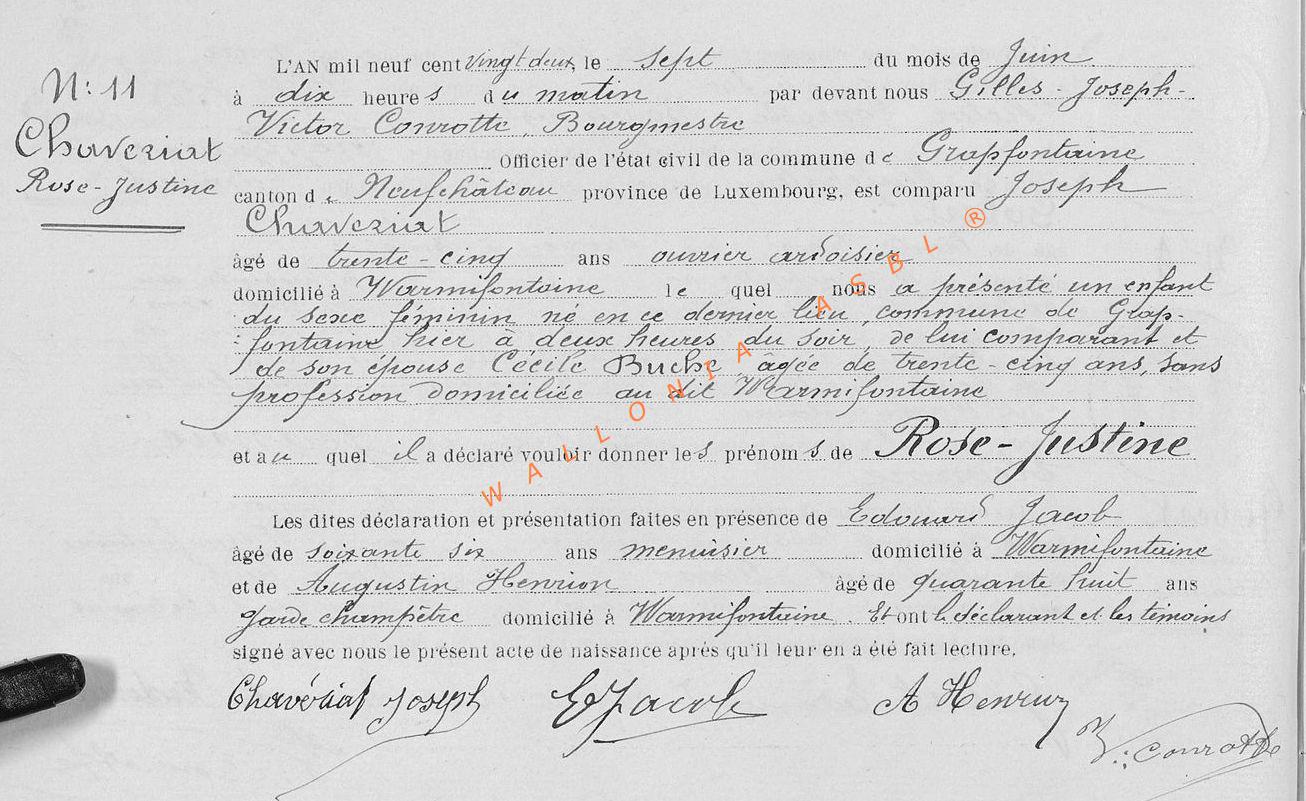 N: 11
Chaveriat
Rose-Justine
L'AN mil neuf cent vingt deux, le sept du mois de Juin
à dix heures du matin par devant nous Gilles-Joseph-
Victor Conrotte, Bourgmestre
Officier de l'état civil de la commune de Grapfontaine
canton de Neufchâteau province de Luxembourg, est comparu Joseph
Chaveriat
âgé de trente-cinq ans ouvrier ardoisier
domicilié à Warmifontaine lequel nous a présenté un enfant
du sexe féminin né en ce dernier lieu, commune de Grap-
fontaine hier à deux heures du soir, de lui comparant et
de son épouse Cécile Buche, agée de trente-cinq ans, sans
profession domiciliée au dit Warmifontaine
et au quel il a déclaré vouloir donner les prénoms de Rose-Justine
Les dites déclaration et présentation faites en présence de Edouard Jacob
âgé de soixante six ans menuisier domicilié à Warmifontaine
et de Augustin Henrion âgé de quarante huit ans
garde champêtre domicilié à Warmifontaine. Et ont le déclarant et les témoins
signé avec nous le présent acte de naissance après qu'il leur en a été fait lecture.
Chavériat Joseph E Jacob A Henrion
V. Conrotte
WALLONIA ASBL ®